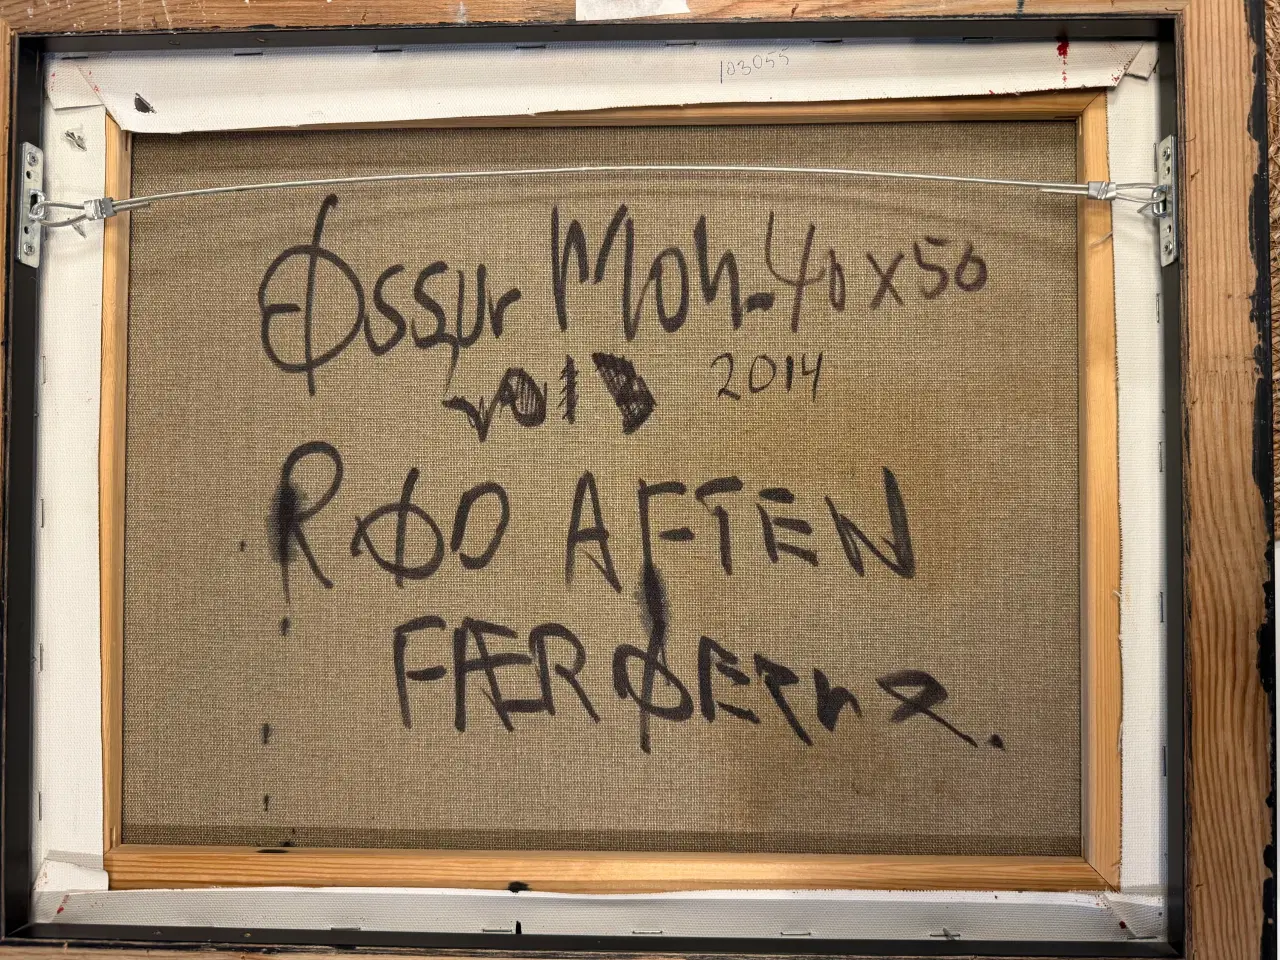 103055
Øssur Moh. 40x50
2014
RØD AFTEN
FÆRØERNE.